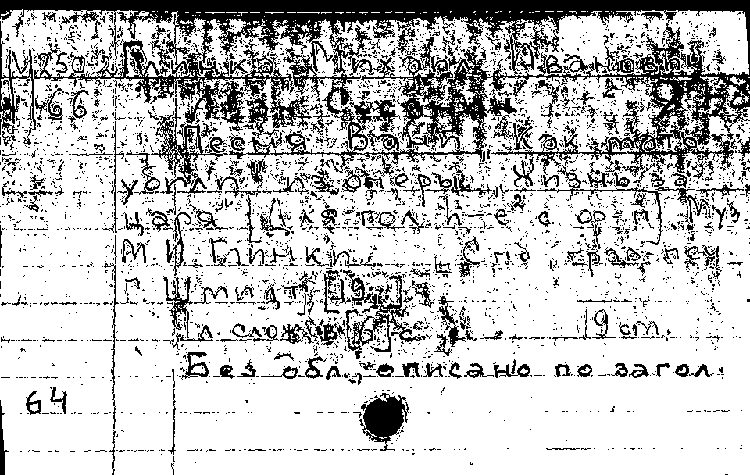 Глинка, Михаил Иванович
Иван Сусанин
Песня Вани „Как мать
убили" из оперы „Жизнь за
царя" [Для гол. с ф-п] Муз.
М. И. Глинки. Спб,
Г. Шмидт, [19
1 л. слож. в [6] с. 19 cm.
Без обл., описано по загол.
64